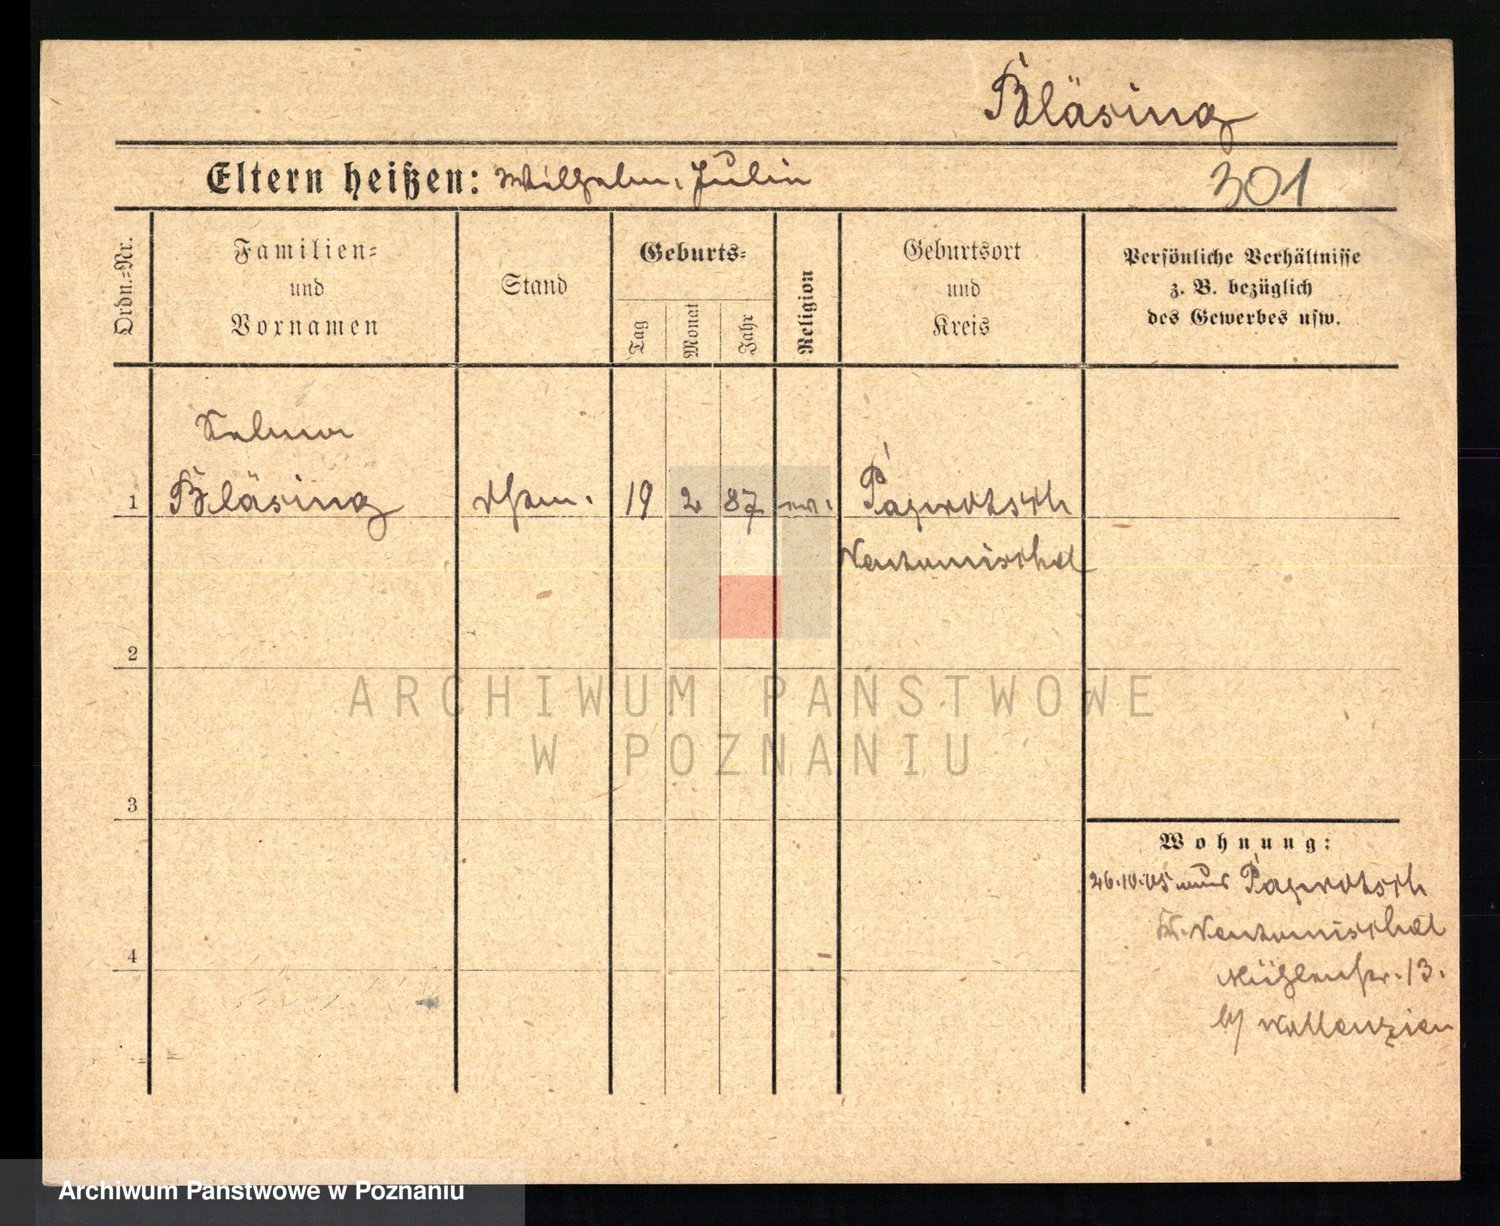 Bläsing
Eltern heißen: Wilhelm, Julie
301
Ordn.-Nr.
Familien-
und
Vornamen
Stand
Geburts-
Tag
Monat
Jahr
Religion
Geburtsort
und
Kreis
Persönliche Verhältnisse
z. B. bezüglich
des Gewerbes usw.
Selma
1 Bläsing 19 2 87 ev. Paprotsch
Neutomischel
2
ARCHIWUM PAŃSTWOWE
W POZNANIU
3
Wohnung:
26.10.05 aus Paprotsch
Kr. Neutomischel
4
Mühlenstr. 13.
b/ Wallenzien
Archiwum Państwowe w Poznaniu